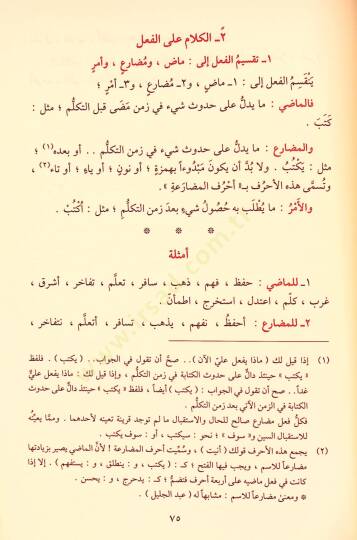 ٢ً ـ الكلام على الفعل
١ ـ تقسيمُ الفعل إلى : ماض ، ومُضارع ، وأمرٍ
يَنْقَسِمُ الفعل إلى : ١ـ ماض ، و٢ـ مُضارعٍ ، و٣ـ أمْرٍ ؛
فالماضي : ما يدلُّ على حدوث شيء في زمن مَضَى قبل التكلُّمِ ؛ مثل :
كَتَبَ .
والمضارع : ما يدلُّ على حدوث شيء في زمن التكلُّم . . أو بعده (١) ؛
مثل : يَكْتُبُ . ولا بُدَّ أن يكونَ مَبْدُوءاً بهمزةٍ ؛ أو نونٍ ؛ أو ياءٍ ؛ أو تاء (٢) ،
وتُسمَّى هذه الأحرُف بـ« أحْرُف المضارَعةِ » .
والأَمْرُ : ما يُطْلَب به حُصولُ شيءٍ بعدَ زمن التكلُّمِ ؛ مثل : اُكْتُبْ .
* * *
أمثلة
١ـ للماضي : حفظ ، فهم ، ذهب ، سافر ، تعلَّم ، تفاخر ، أشرق ،
غرب ، كلّم ، اعتدل ، استخرج ، اطمأنّ .
٢ـ للمضارع : أحفظُ ، نفهم ، يذهب ، تسافر ، أتعلَّم ، نتفاخر ،
(١) إذا قيل لك ( ماذا يفعل عليّ الآن ) . . صحَّ أن تقول في الجواب . . ( يكتب ) . فلفظ
« يكتب » حينئذ دالٌّ على حدوث الكتابة في زمن التكلُّم ، وإذا قيل لك : ماذا يفعل عليٌّ
غداً . . صح أن تقول في الجواب : ( يكتب ) أيضاً ، فلفظ « يكتب » حينئذٍ دالٌّ على حدوث
الكتابة في الزمن الآتي بعد زمن التكلُّم .
فكلُّ فعل مضارع صالح للحال والاستقبال ما لم توجد قرينة تعينه لأحدهما . وممَّا يعيِّنُه
للاستقبال السين و« سوف » ؛ نحو : سيكتب ، أو : سوف يكتب .
(٢) يجمع هذه الأحرف قولك ( أنيت ) ، وسُمِّيت أحرف المضارعة ! لأنَّ الماضي يصير بزيادتها
مضارعاً للاسم ، ويجب فيها الفتح ؛ كـ : ( يكتب ، و : ينطلق ، و : يستفهم ) . إلا إذا
كانت في فعل ماضيه على أربعة أحرف فتضم ؛ كـ : يدحرج ، و : يحسن .
* ومعنىٰ مضارعاً للاسم : مشابهاً له ( عبد الجليل ) .
٧٥